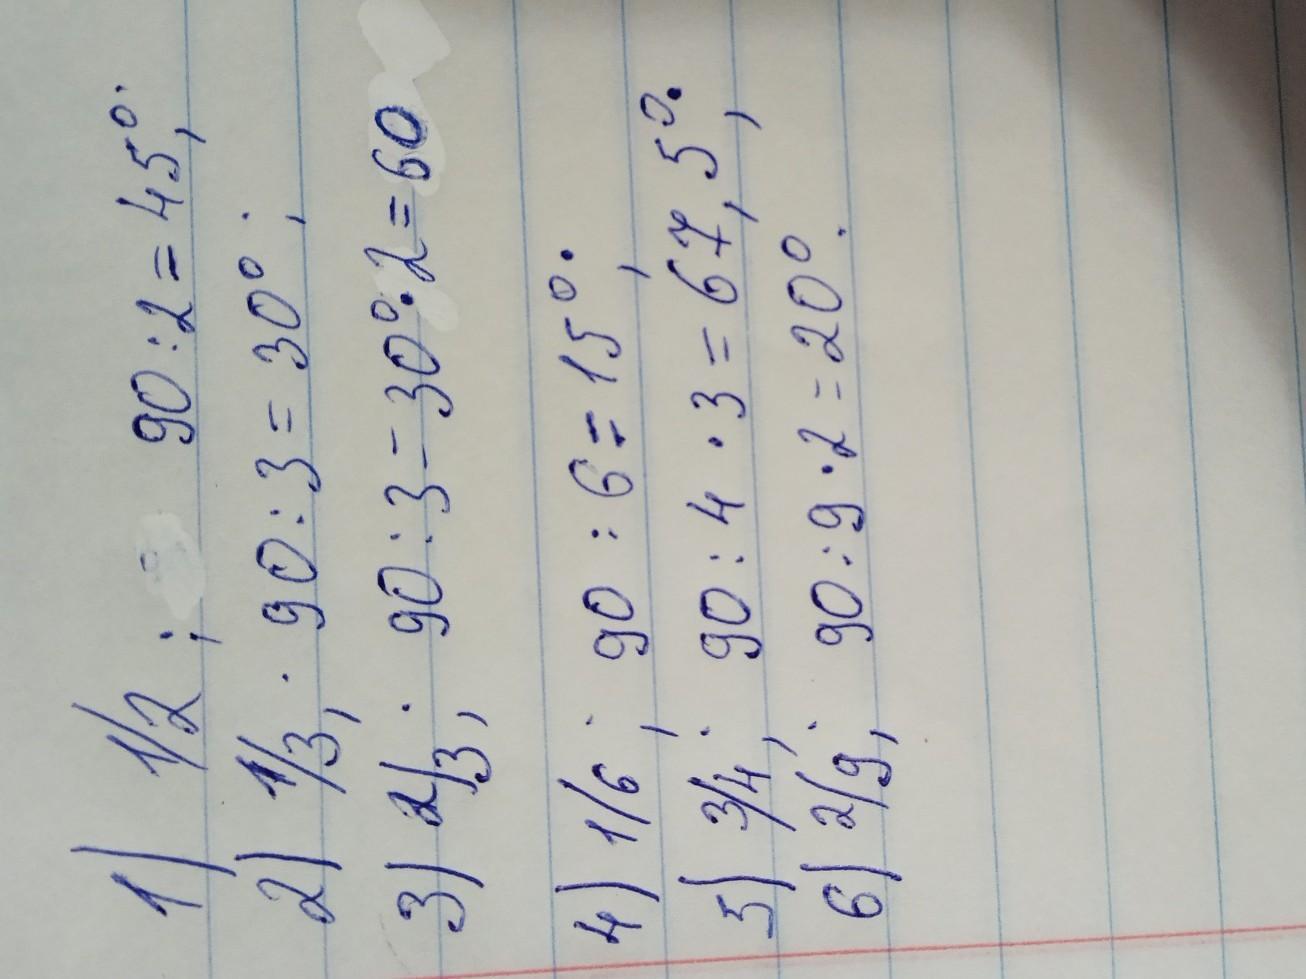 1) 1/2 ; 90 : 2 = 45°;
2) 1/3; 90 : 3 = 30°;
3) 2/3; 90 : 3 = 30° · 2 = 60
4) 1/6; 90 : 6 = 15°;
5) 3/4; 90 : 4 · 3 = 67,5°;
6) 2/9; 90 : 9 · 2 = 20°.